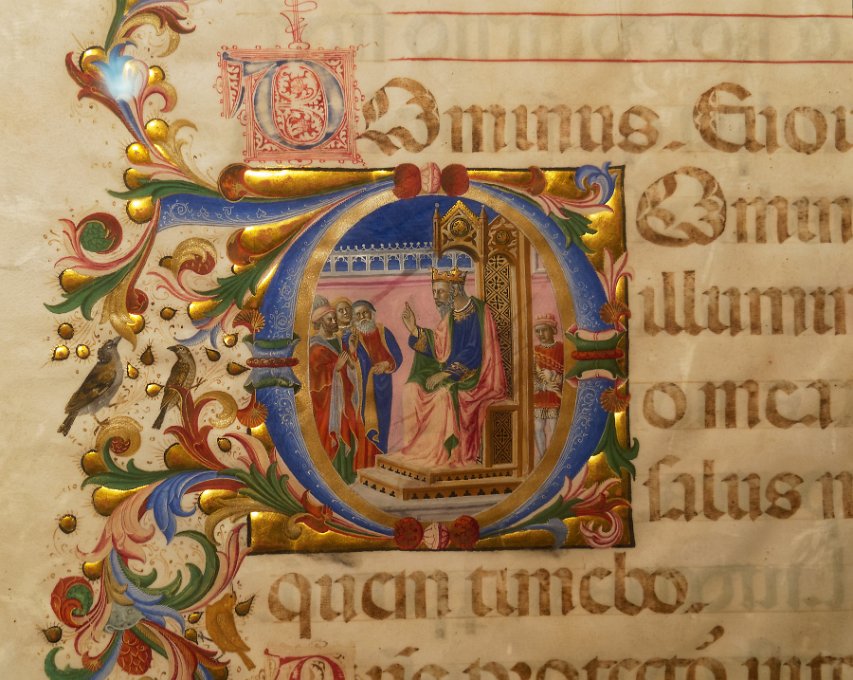 DOminus. Euou
DOmin
illumin
o mea
salus m
quem timebo.